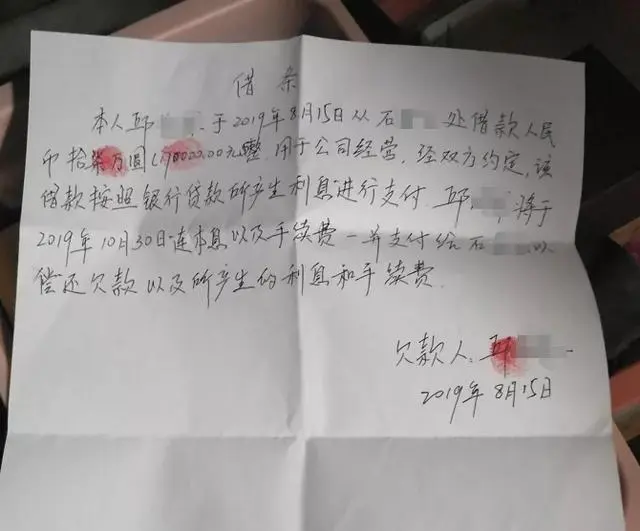 借条
本人邱 于2019年8月15日从石 处借款人民
币拾柒万圆(170000.00元整 用于公司经营,经双方约定,该
借款按照银行贷款所产生利息进行支付.邱 将于
2019年10月30日连本息以及手续费一并支付给石 以
偿还欠款以及所产生的利息和手续费.
欠款人:邱
2019年8月15日